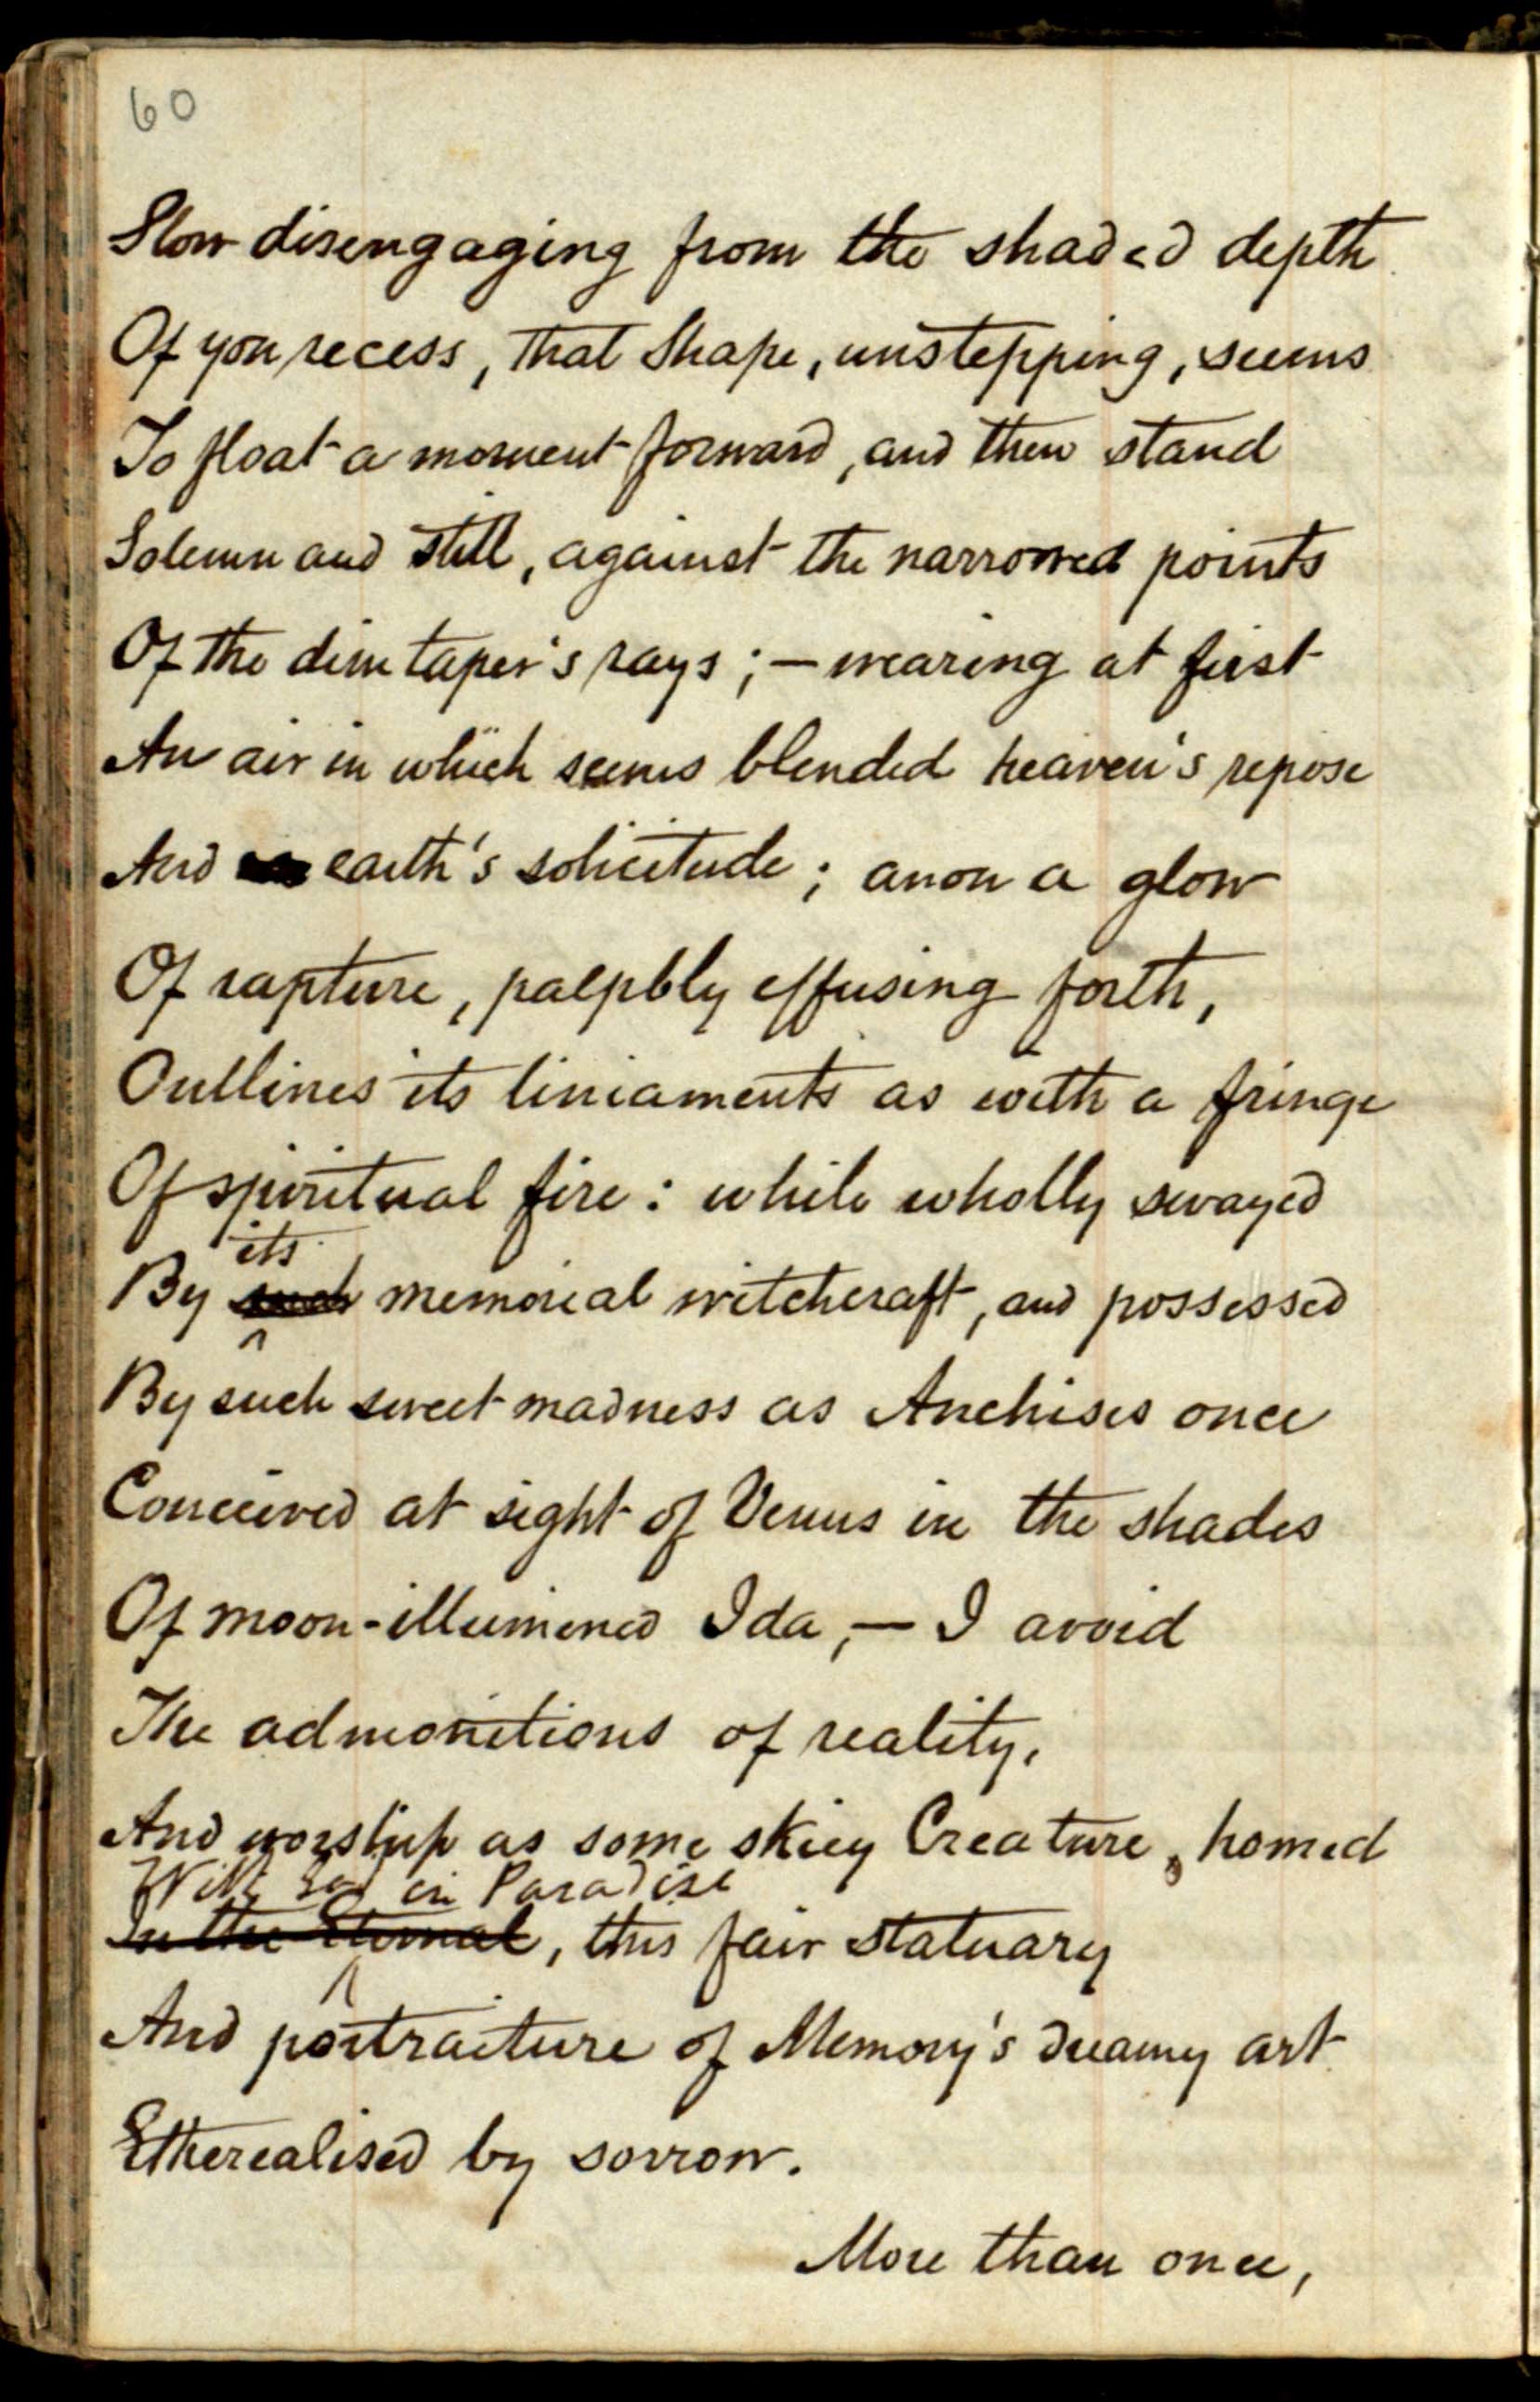 60
Slow disengaging from the shaded depth
Of yon recess, that Shape, unstepping, seems
To float a moment forward, and then stand
Solemn and still, against the narrowed points
Of the dim taper's rays; — wearing at first
An air in which seems blended heaven's repose
And earth's solicitude; anon a glow
Of rapture, palpbly effusing forth,
Outlines its liniaments as with a fringe
Of spiritual fire: while wholly swayed
its
By such memorial witchcraft, and possessed
By such sweet madness as Anchises once
Conceived at sight of Venus in the shades
Of moon-illumined Ida, — I avoid
The admonitions of reality,
And worship as some skiey Creature, homed
With God in Paradise
In the Eternal, this fair statuary
And portraiture of Memory's dreamy art
Etherealised by sorrow.
More than once,